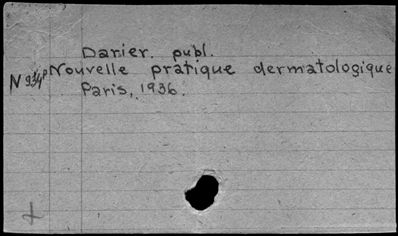 Darier. publ.
Nouvelle pratique dermatologique
Paris, 1936.